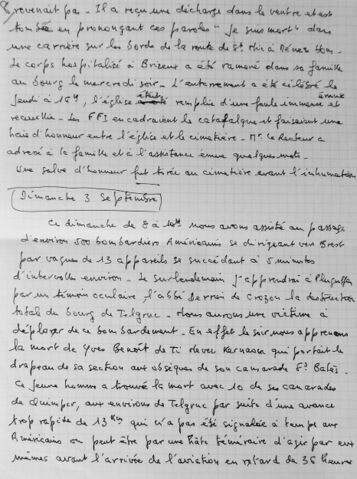 revenait pas. Il a reçu une décharge dans le ventre et est
tombé en prononçant ces paroles "je suis mort" dans
une carrière sur les bords de la route de St Nic à Ménez Hom.
Le corps hospitalisé à Briec a été ramené dans sa famille
au bourg le mercredi soir. L'enterrement a été célébré le
jeudi à 16h, l'église était remplie d'une foule immense et émue
recueillie. Les FFI encadraient le catafalque et faisaient une
haie d'honneur entre l'église et le cimetière. Mr le Recteur a
adressé à la famille et à l'assistance émue quelques mots.
Une salve d'honneur fut tirée au cimetière avant l'inhumation
Dimanche 3 Septembre
Ce dimanche de 8 à nous avons assisté au passage
d'environ 500 bombardiers Américains se dirigeant vers Brest
par vagues de 13 appareils se succédant à 5 minutes
d'intervalles environ. Le surlendemain j'apprendrai à Pluguffan
par un témoin oculaire, l'abbé de Crozon la destruction
total du bourg de Telgruc. Nous aurons une victime à
déplorer de ce bombardement. En effet le soir nous apprenons
la mort de Yves Benoît de Ti qui portait le
drapeau de sa section aux obsèques de son camarade Fs
Ce jeune homme a trouvé la mort avec 10 de ses camarades
de Quimper, aux environs de Telgruc par suite d'une avance
trop rapide de 13 Kms qui n'a pas été signalée à temps aux
Américains ou peut être par une hâte téméraire d'agir par eux
mêmes avant l'arrivée de l'aviation en retard de 36 heures